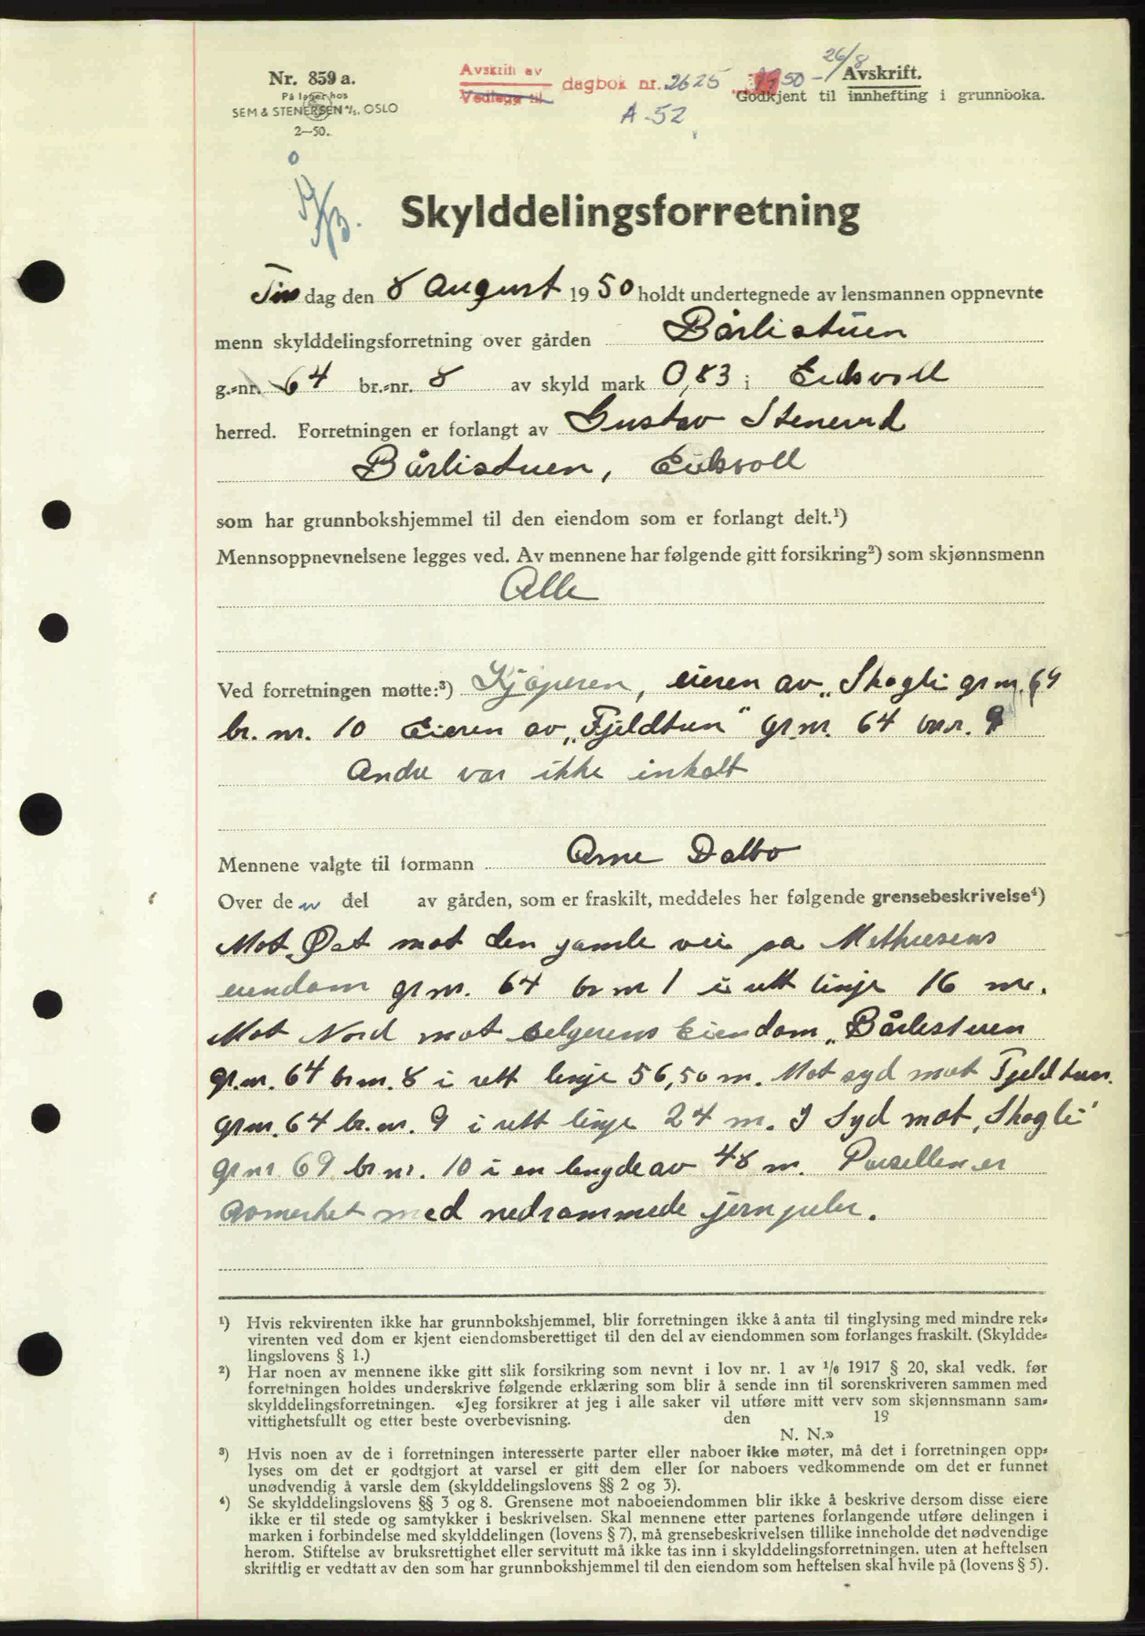 26/8
Nr. 859 a.
På lager hos
SEM & STENERSEN A/S. OSLO
2—50.
Avskrift av
Vedlegg til
dagbok nr. 2625 1950
A-52
Avskrift.
Godkjent til innhefting i grunnboka.
Skylddelingsforretning
Tirsdag den 8 August 1950 holdt undertegnede av lensmannen oppnevnte
menn skylddelingsforretning over gården Bårlistuen
g.-nr. 64 br.-nr. 8 av skyld mark 0,83 i Eidsvoll
herred. Forretningen er forlangt av Gustav Stenerud
Bårlistuen, Eidsvoll
som har grunnbokshjemmel til den eiendom som er forlangt delt.¹)
Mennsoppnevnelsene legges ved. Av mennene har følgende gitt forsikring²) som skjønnsmenn
Alle
Ved forretningen møtte:³) Kjøperen, eieren av „Skogli gr nr. 64
br. nr. 10 Eieren av „Fjeldtun" gr.nr. 64 br.nr. 9
Andre var ikke inkalt
Mennene valgte til formann Arne Dalbo
Over de n del av gården, som er fraskilt, meddeles her følgende grensebeskrivelse⁴)
Mot Øst mot den gamle vei på Mathiesens
eiendom gr nr. 64 br nr 1 i rett linje 16 m.
Mot Nord mot selgerens Eiendom „Bårlistuen
gr.nr. 64 br.nr. 8 i rett linje 56,50 m. Mot syd mot Fjeldtun
gr nr. 64 br. nr. 9 i rett linje 24 m. I Syd mot „Skogli"
gr nr 69 br nr. 10 i en lengde av 48 m. Parsellen er
avmerket med nedrammede jernpeler.
¹) Hvis rekvirenten ikke har grunnbokshjemmel, blir forretningen ikke å anta til tinglysing med mindre rek-
virenten ved dom er kjent eiendomsberettiget til den del av eiendommen som forlanges fraskilt. (Skyldde-
lingslovens § 1.)
²) Har noen av mennene ikke gitt slik forsikring som nevnt i lov nr. 1 av 1/6 1917 § 20, skal vedk. før
forretningen holdes underskrive følgende erklæring som blir å sende inn til sorenskriveren sammen med
skylddelingsforretningen. «Jeg forsikrer at jeg i alle saker vil utføre mitt verv som skjønnsmann sam-
vittighetsfullt og etter beste overbevisning. den 19
N. N.»
³) Hvis noen av de i forretningen interesserte parter eller naboer ikke møter, må det i forretningen opp-
lyses om det er godtgjort at varsel er gitt dem eller for naboers vedkommende om det er funnet
unødvendig å varsle dem (skylddelingslovens §§ 2 og 3).
⁴) Se skylddelingslovens §§ 3 og 8. Grensene mot naboeiendommen blir ikke å beskrive dersom disse eiere
ikke er til stede og samtykker i beskrivelsen. Skal mennene etter partenes forlangende utføre delingen i
marken i forbindelse med skylddelingen (lovens § 7), må grensebeskrivelsen tillike inneholde det nødvendige
herom. Stiftelse av bruksrettighet eller servitutt må ikke tas inn i skylddelingsforretningen, uten at heftelsen
skriftlig er vedtatt av den som har grunnbokshjemmel til den eiendom som heftelsen skal hvile på (lovens § 5).